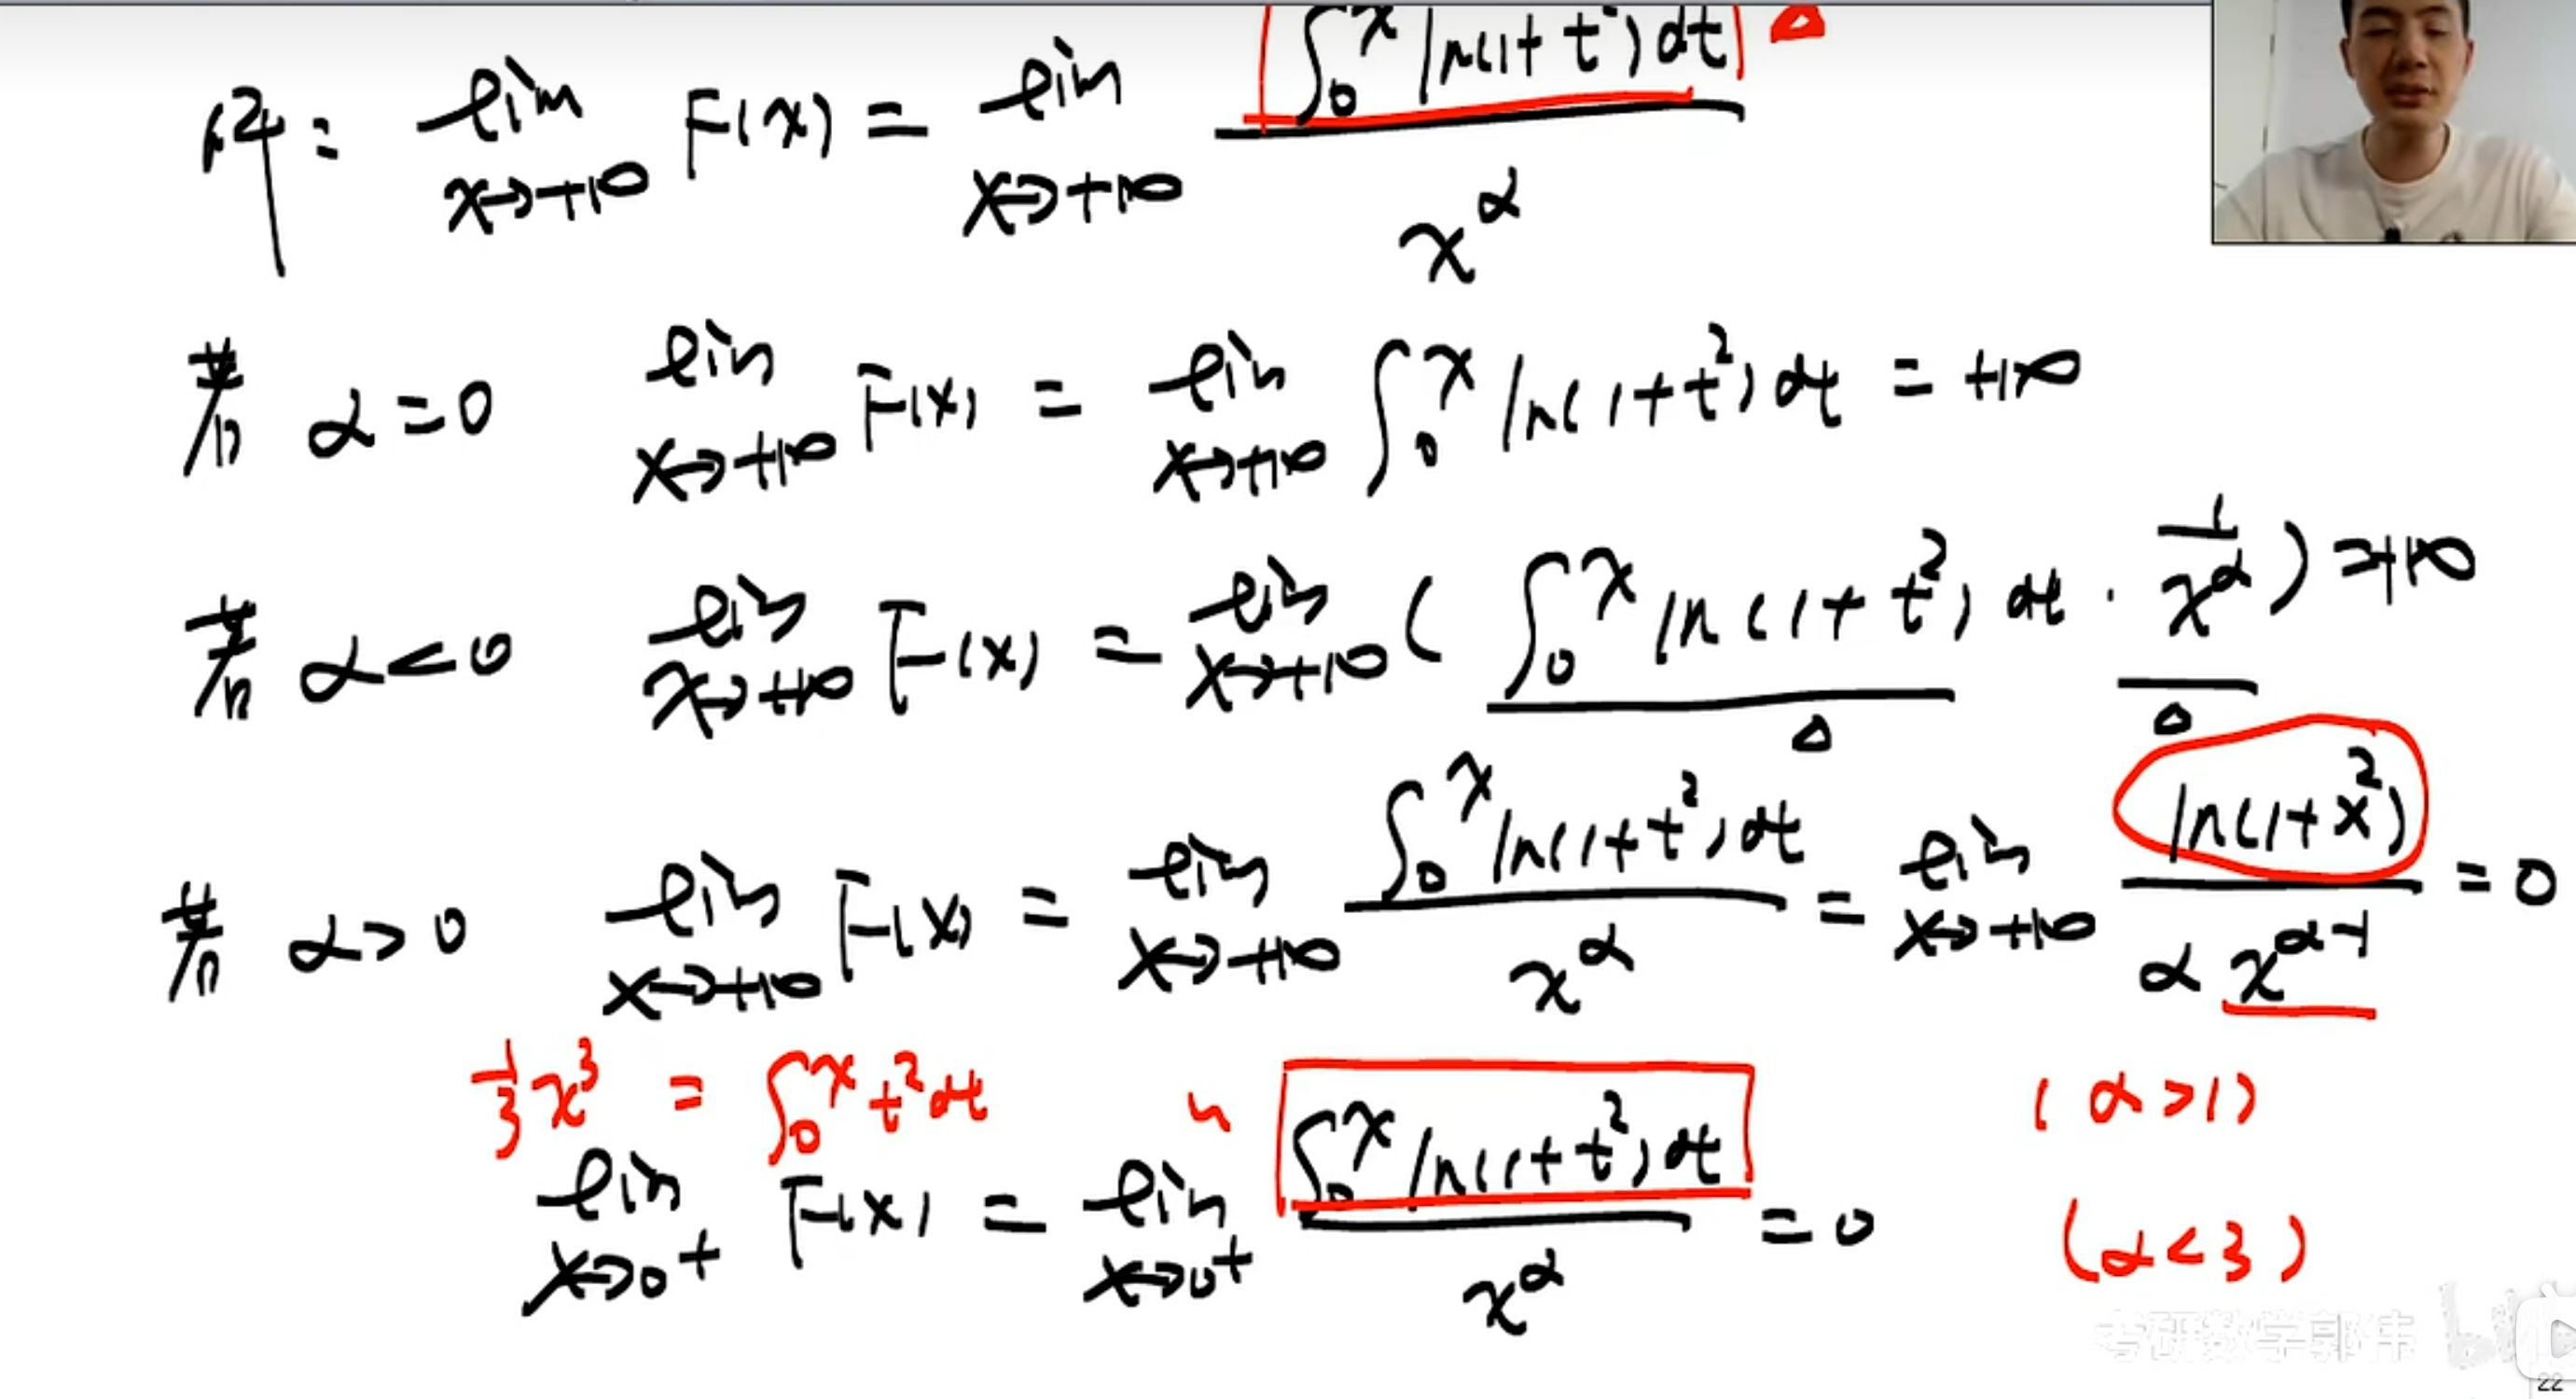 解: lim x→+∞ F(x) = lim x→+∞ ∫₀ˣ ln(1+t²)dt / x^α
若 α=0 lim x→+∞ F(x) = lim x→+∞ ∫₀ˣ ln(1+t²)dt = +∞
若 α<0 lim x→+∞ F(x) = lim x→+∞ (∫₀ˣ ln(1+t²)dt · 1/x^α) = +∞
若 α>0 lim x→+∞ F(x) = lim x→+∞ ∫₀ˣ ln(1+t²)dt / x^α = lim x→+∞ ln(1+x²) / αx^(α-1) = 0
1/3 x³ = ∫₀ˣ t²dt ~ (α>1)
lim x→0⁺ F(x) = lim x→0⁺ ∫₀ˣ ln(1+t²)dt / x^α = 0 (α<3)
考研数学郭伟
22